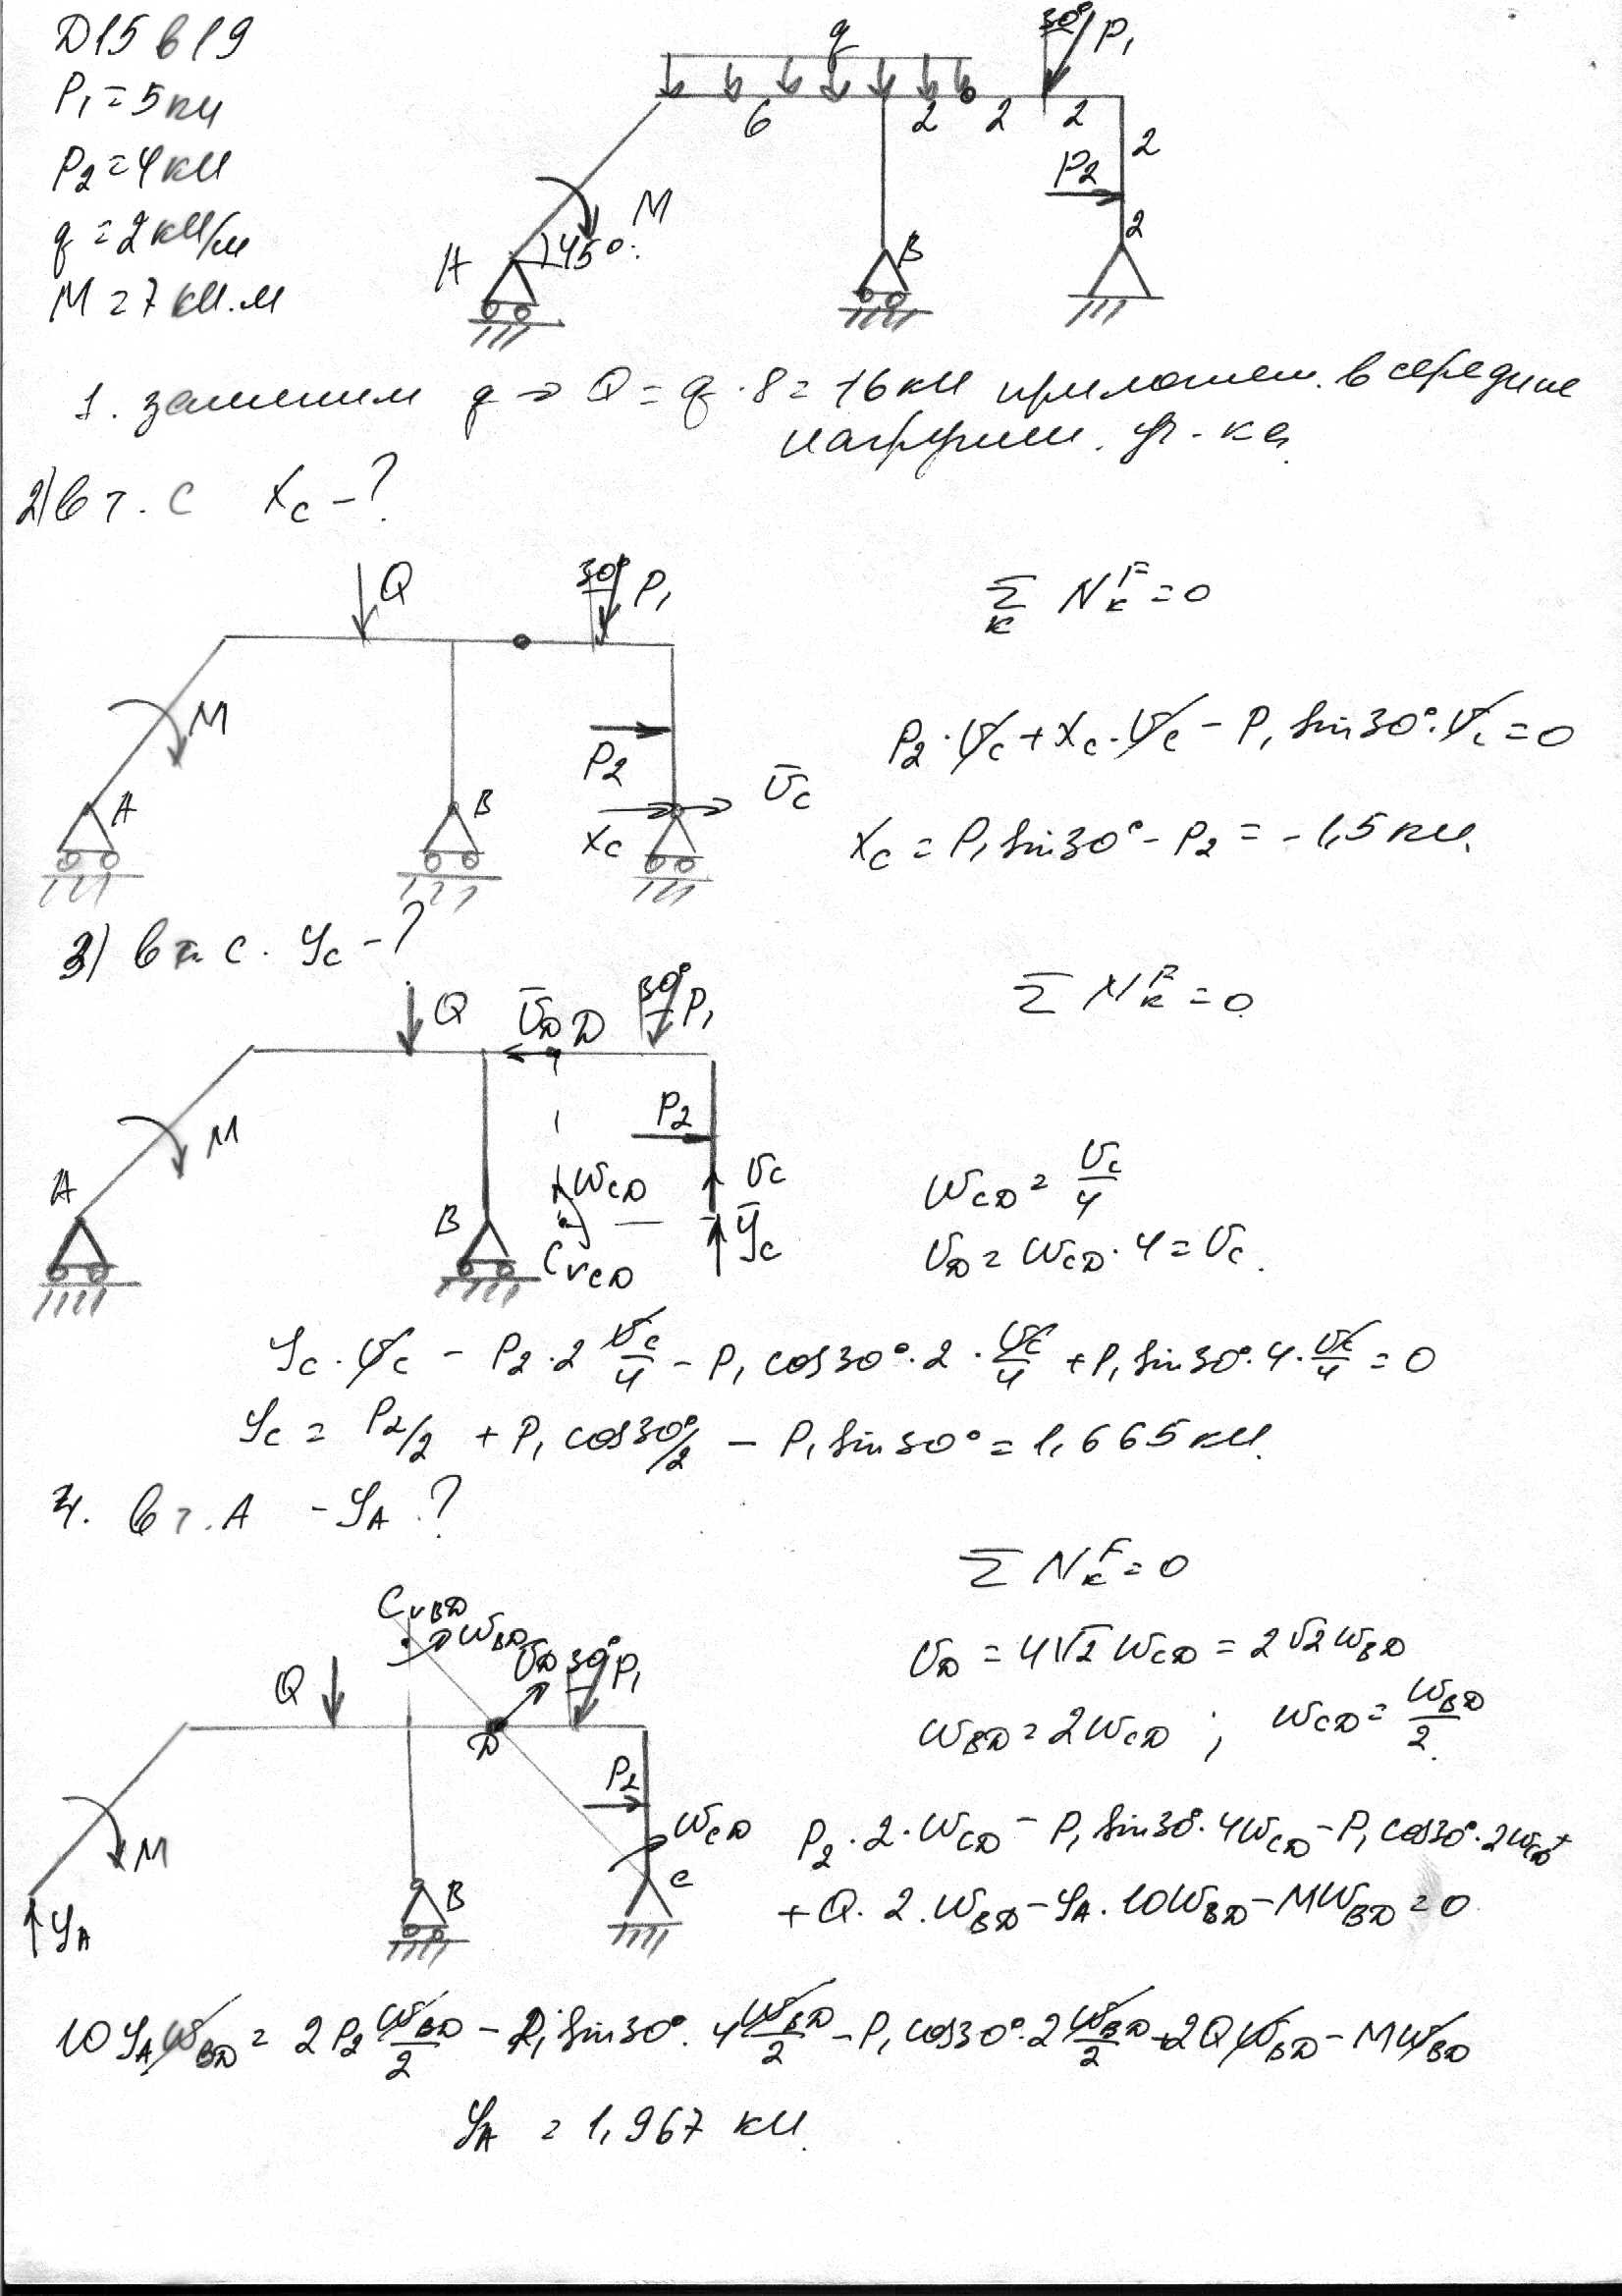 Д15 в19
P₁ = 5 кн
P₂ = 4 кН
q = 2 кН/м
M = 7 кН.м
q
30° P₁
6 2 2 2
2
P₂
2
M
A 45°
B
1. заменим q → Q = q · 8 = 16 кН приложен. в середине
нагружен. уч-ка
2) в т. C X_C - ?
Q 30° P₁
M
P₂
A B
X_C V̄_C
Σ_K N_K^F = 0
P₂ · V_C + X_C · V_C - P₁ sin30° · V_C = 0
X_C = P₁ sin30° - P₂ = -1,5 кН.
3) в т. C. Y_C - ?
Q V̄_D D 30° P₁
M
P₂
A
B
ω_CD
V_C
C_VCD
Ȳ_C
Σ N_K^F = 0
ω_CD = V_C/4
V_D = ω_CD · 4 = V_C.
Y_C · V_C - P₂ · 2 V_C/4 - P₁ cos30° · 2 · V_C/4 + P₁ sin30° · 4 · V_C/4 = 0
Y_C = P₂/2 + P₁ cos30°/2 - P₁ sin30° = 1,665 кН.
4. в т. A - Y_A ?
C_VBD
ω_BD
Q V̄_D 30° P₁
D
P₂
M
ω_CD
B C
Y_A
Σ N_K^F = 0
V_D = 4√2 ω_CD = 2√2 ω_BD
ω_BD = 2ω_CD ; ω_CD = ω_BD/2.
P₂ · 2 · ω_CD - P₁ sin30° · 4ω_CD - P₁ cos30° · 2ω_CD +
+ Q · 2 . ω_BD - Y_A · 10ω_BD - Mω_BD = 0
10 Y_A ω_BD = 2P₂ ω_BD/2 - P₁ sin30° · 4 ω_BD/2 - P₁ cos30° · 2 ω_BD/2 + 2Qω_BD - Mω_BD
Y_A = 1,967 кН.